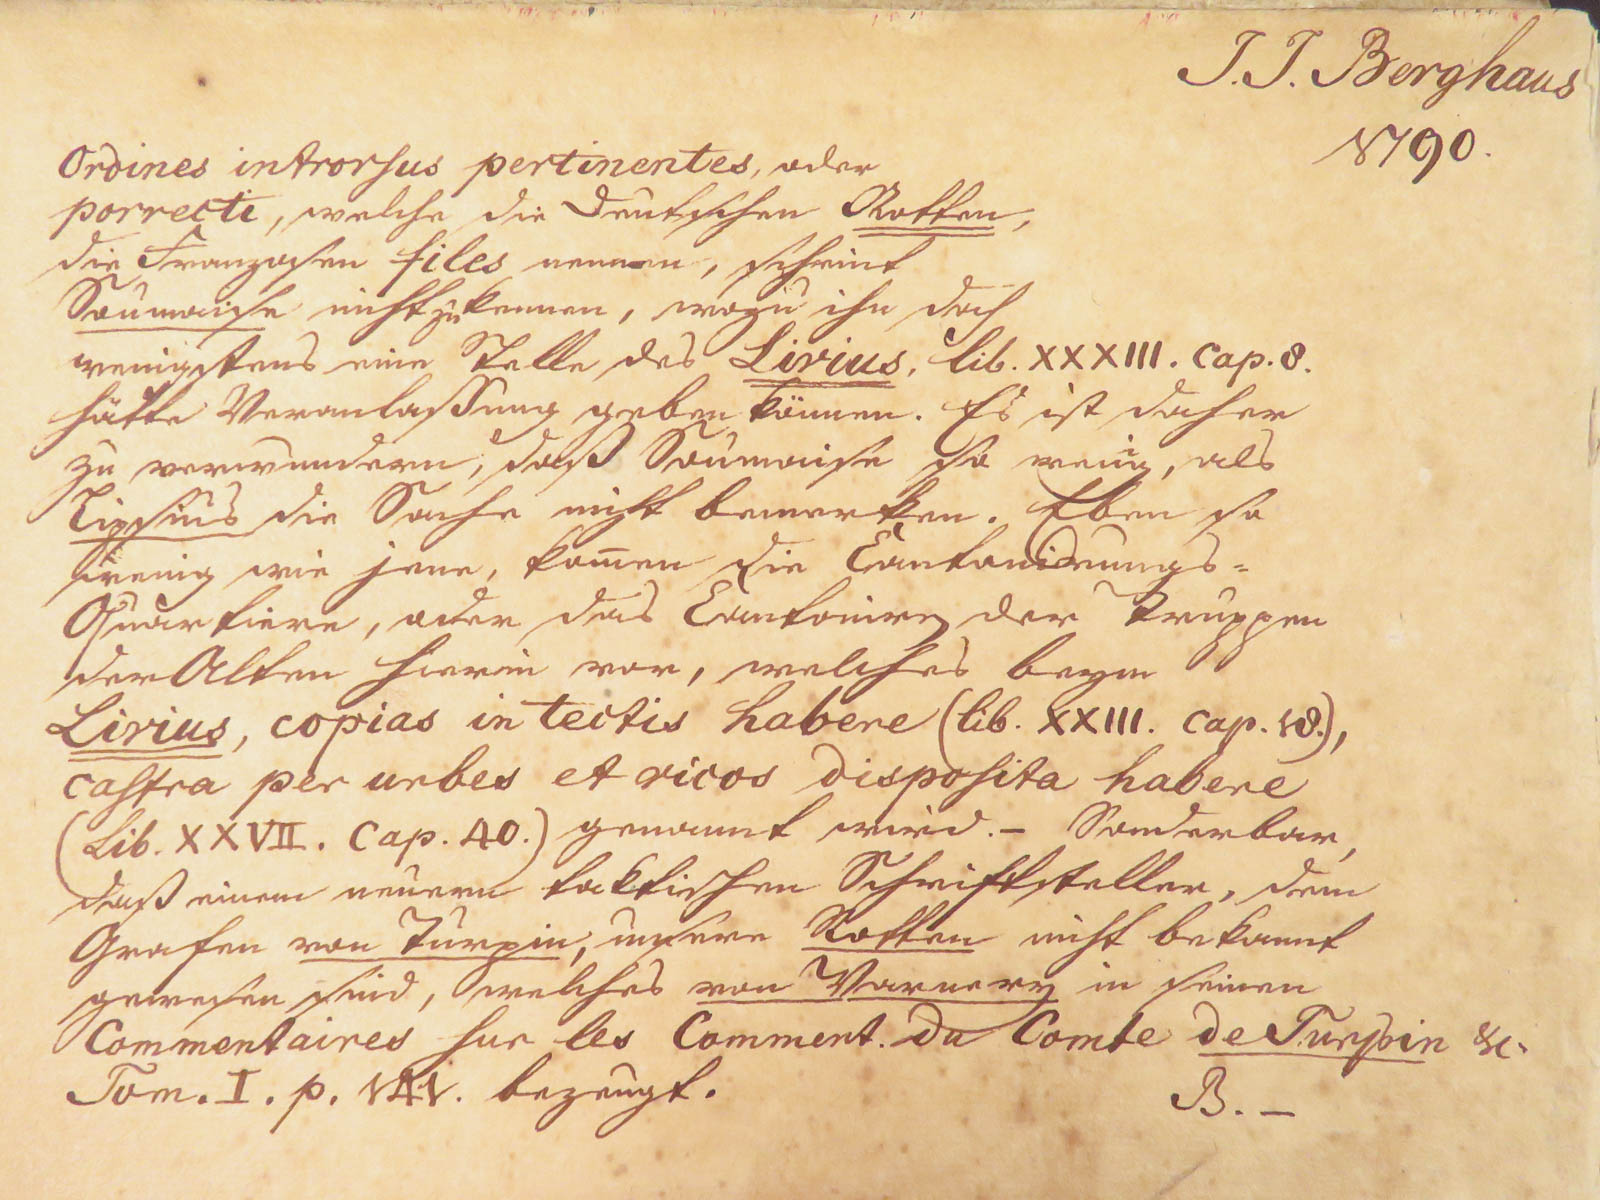 J. J. Berghaus
1790.
Ordines introrsus pertinentes, oder
porrecti, welche die Deutschen Rotten,
die Franzosen files nennen, scheint
Saumaise nicht zu kennen, wozu ihn doch
wenigstens eine Stelle des Livius, lib. XXXIII. Cap. 8.
hätte Veranlassung geben können. Es ist daher
zu verwundern, daß Saumaise so wenig, als
Lipsius die Sache nicht bemerken. Eben so
wenig wie jene, kom̅en die Cantonirungs-
Quartiere, oder das Cantoniren der Truppen
der Alten hierin vor, welches beym
Livius, copias in tectis habere (lib. XXIII. Cap. 18.),
castra per urbes et vicos disposita habere
(Lib. XXVII. Cap. 40.) genannt wird. – Sonderbar,
daß einem neuern taktischen Schriftsteller, dem
Grafen von Turpin, unsere Rotten nicht bekannt
gewesen sind, welches von Warnery in seinen
Commentaires sur les Comment. du Comte de Turpin &c.
Tom. I. p. 141. bezeugt.
B. –